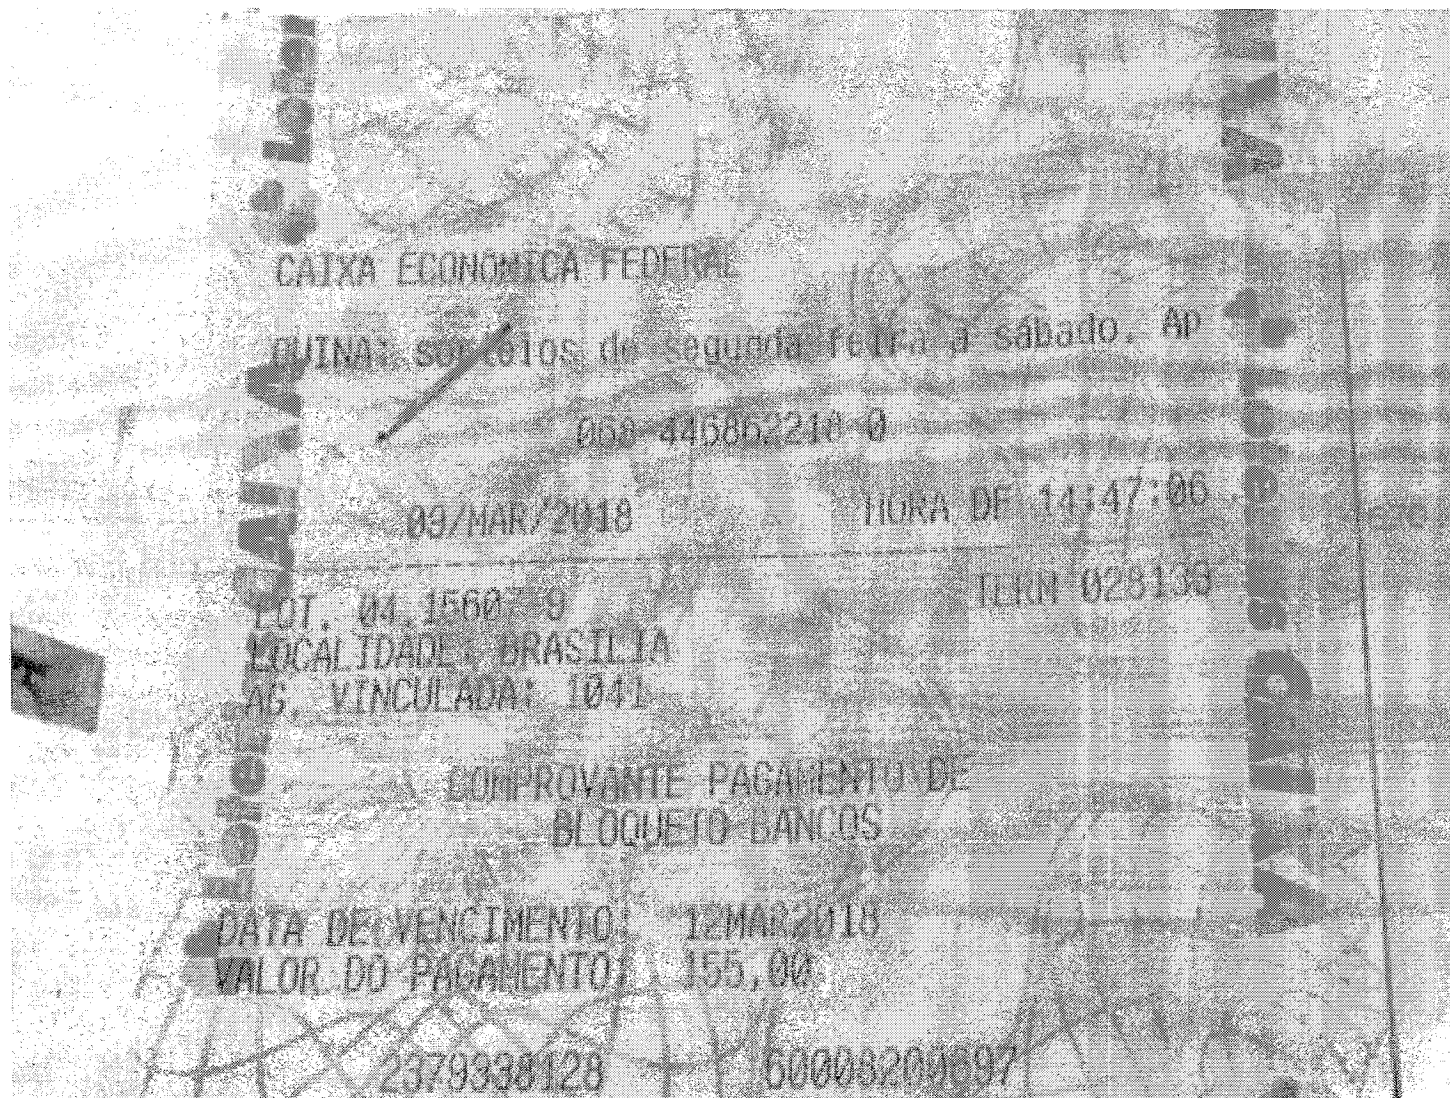 CAIXA ECONOMICA FEDERAL
QUINA: sorteios de segunda feira a sábado. Ap
068 446862218 0
09/MAR/2018 HORA DF 14:47:06
LOT. 04.15607 9 TERM 028139
LOCALIDADE: BRASILIA
AG. VINCULADA: 1041
COMPROVANTE PAGAMENTO DE
BLOQUETO BANCOS
DATA DE VENCIMENTO: 12MAR2018
VALOR DO PAGAMENTO: 155,00
2379338128 60008200897